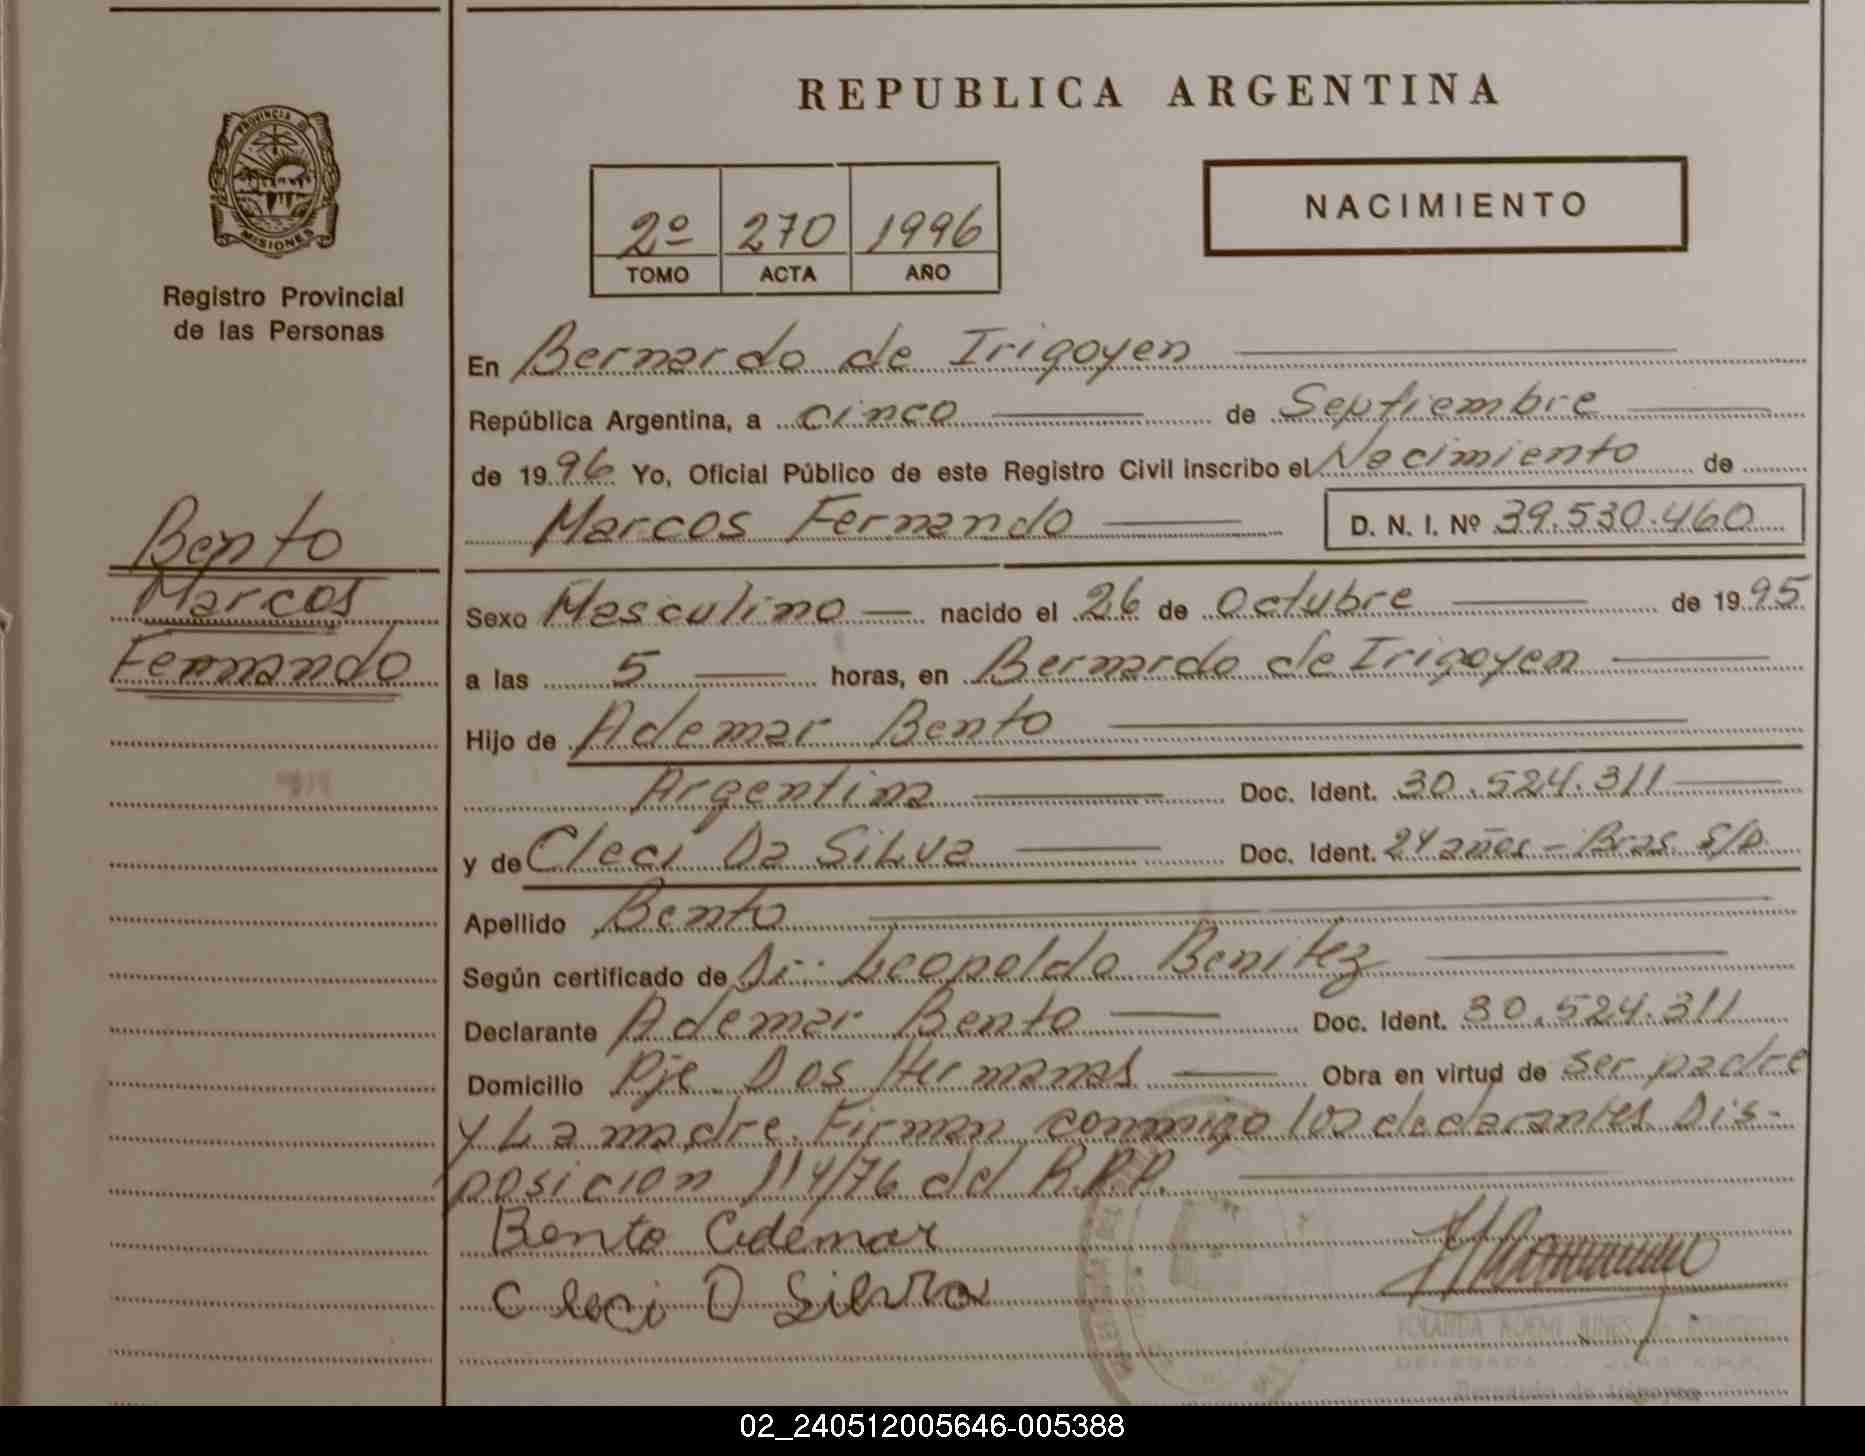 REPUBLICA ARGENTINA
PROVINCIA D
MISIONES
Registro Provincial
de las Personas
2º 270 1996
TOMO ACTA AÑO
NACIMIENTO
En Bernardo de Irigoyen
República Argentina, a cinco de Septiembre
de 1996 Yo, Oficial Público de este Registro Civil inscribo el Nacimiento de
Marcos Fernando D. N. I. Nº 39.530.460
Bento
Marcos
Fernando
Sexo Masculino nacido el 26 de Octubre de 1995
a las 5 horas, en Bernardo de Irigoyen
Hijo de Ademar Bento
Argentina Doc. Ident. 30.524.311
y de Cleci Da SiLva Doc. Ident. 24 años - Bras. S/D
Apellido Bento
Según certificado de Dr. Leopoldo Benitez
Declarante Ademar Bento Doc. Ident. 30.524.311
Domicilio Pje. Dos Hermanas Obra en virtud de ser padre
y La madre. Firman conmigo los declarantes. Dis-
posicion 114/76 del R.P.P.
Bento Ademar
Cleci D Silvia
YOLANDA NOEMI
DELEGADA
Bernardo de Irigoyen
02_240512005646-005388